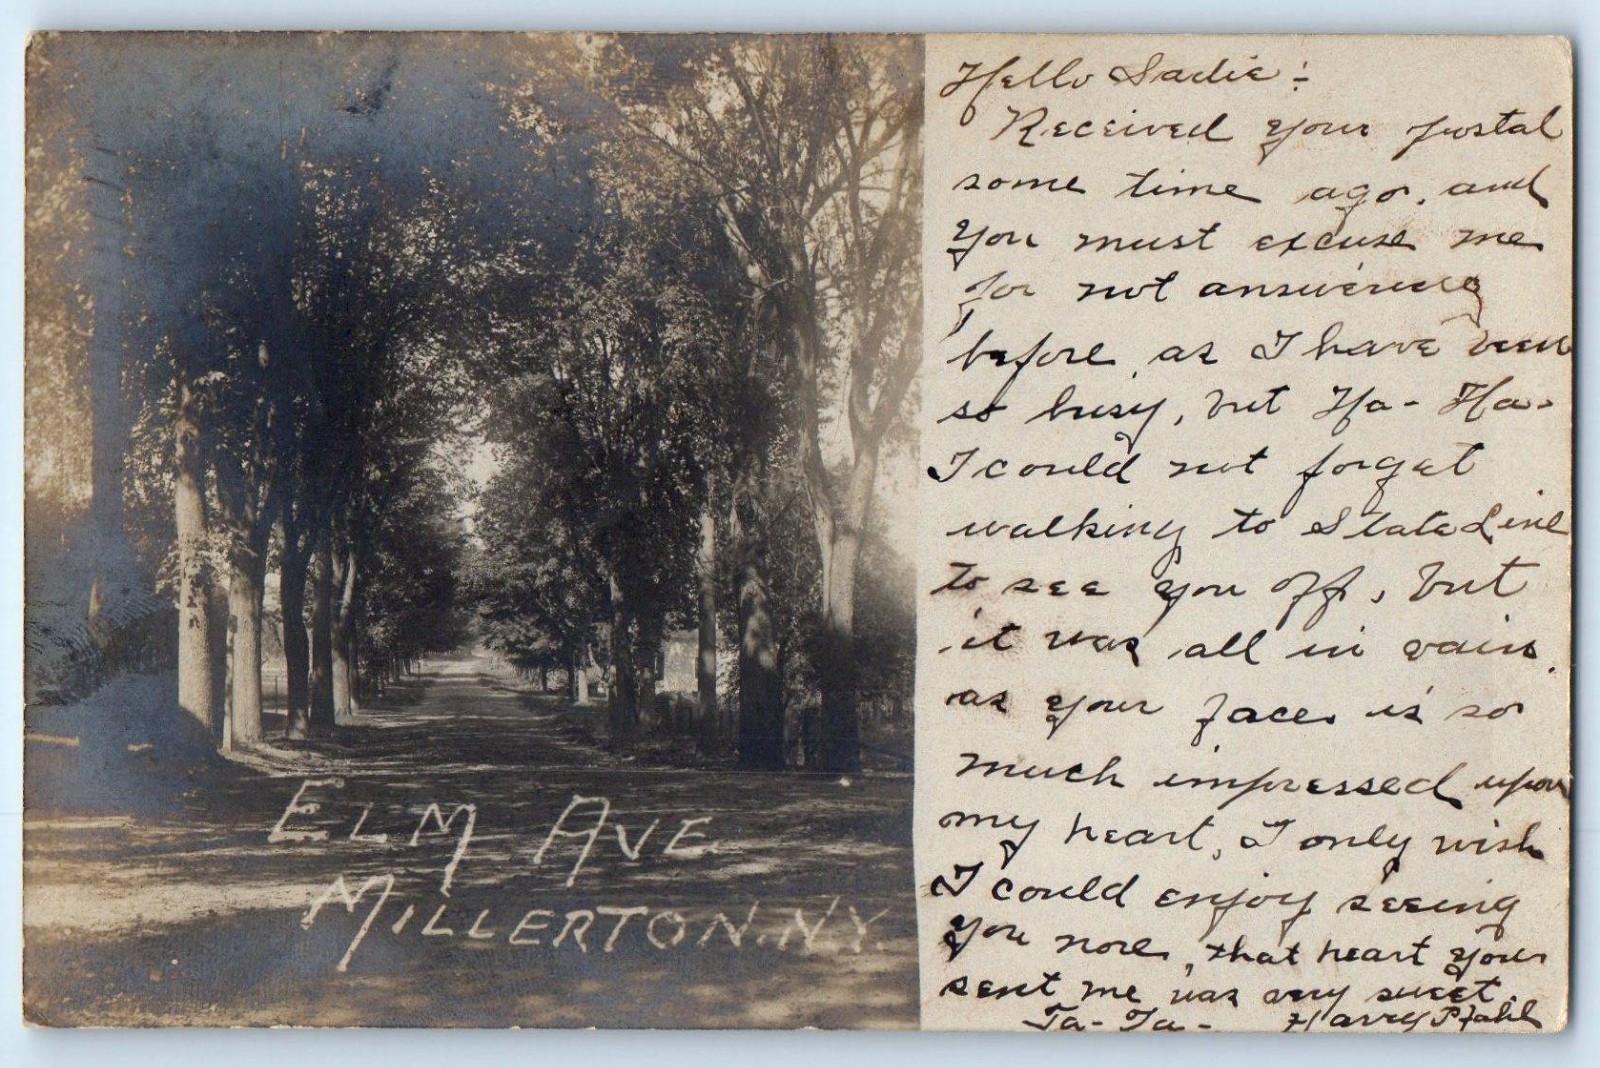 Elm Ave.
Millerton. N.Y.
Hello Sadie:
Received your postal
some time ago, and
you must excuse me
for not answering
before, as I have been
so busy, but Ha - Ha -
I could not forget
walking to State Line
to see you off, but
it was all in vain.
as your face is so
much impressed upon
my heart, I only wish
I could enjoy seeing
you more, that heart your
sent me was very sweet.
Ta - Ta - Harry Pfahl